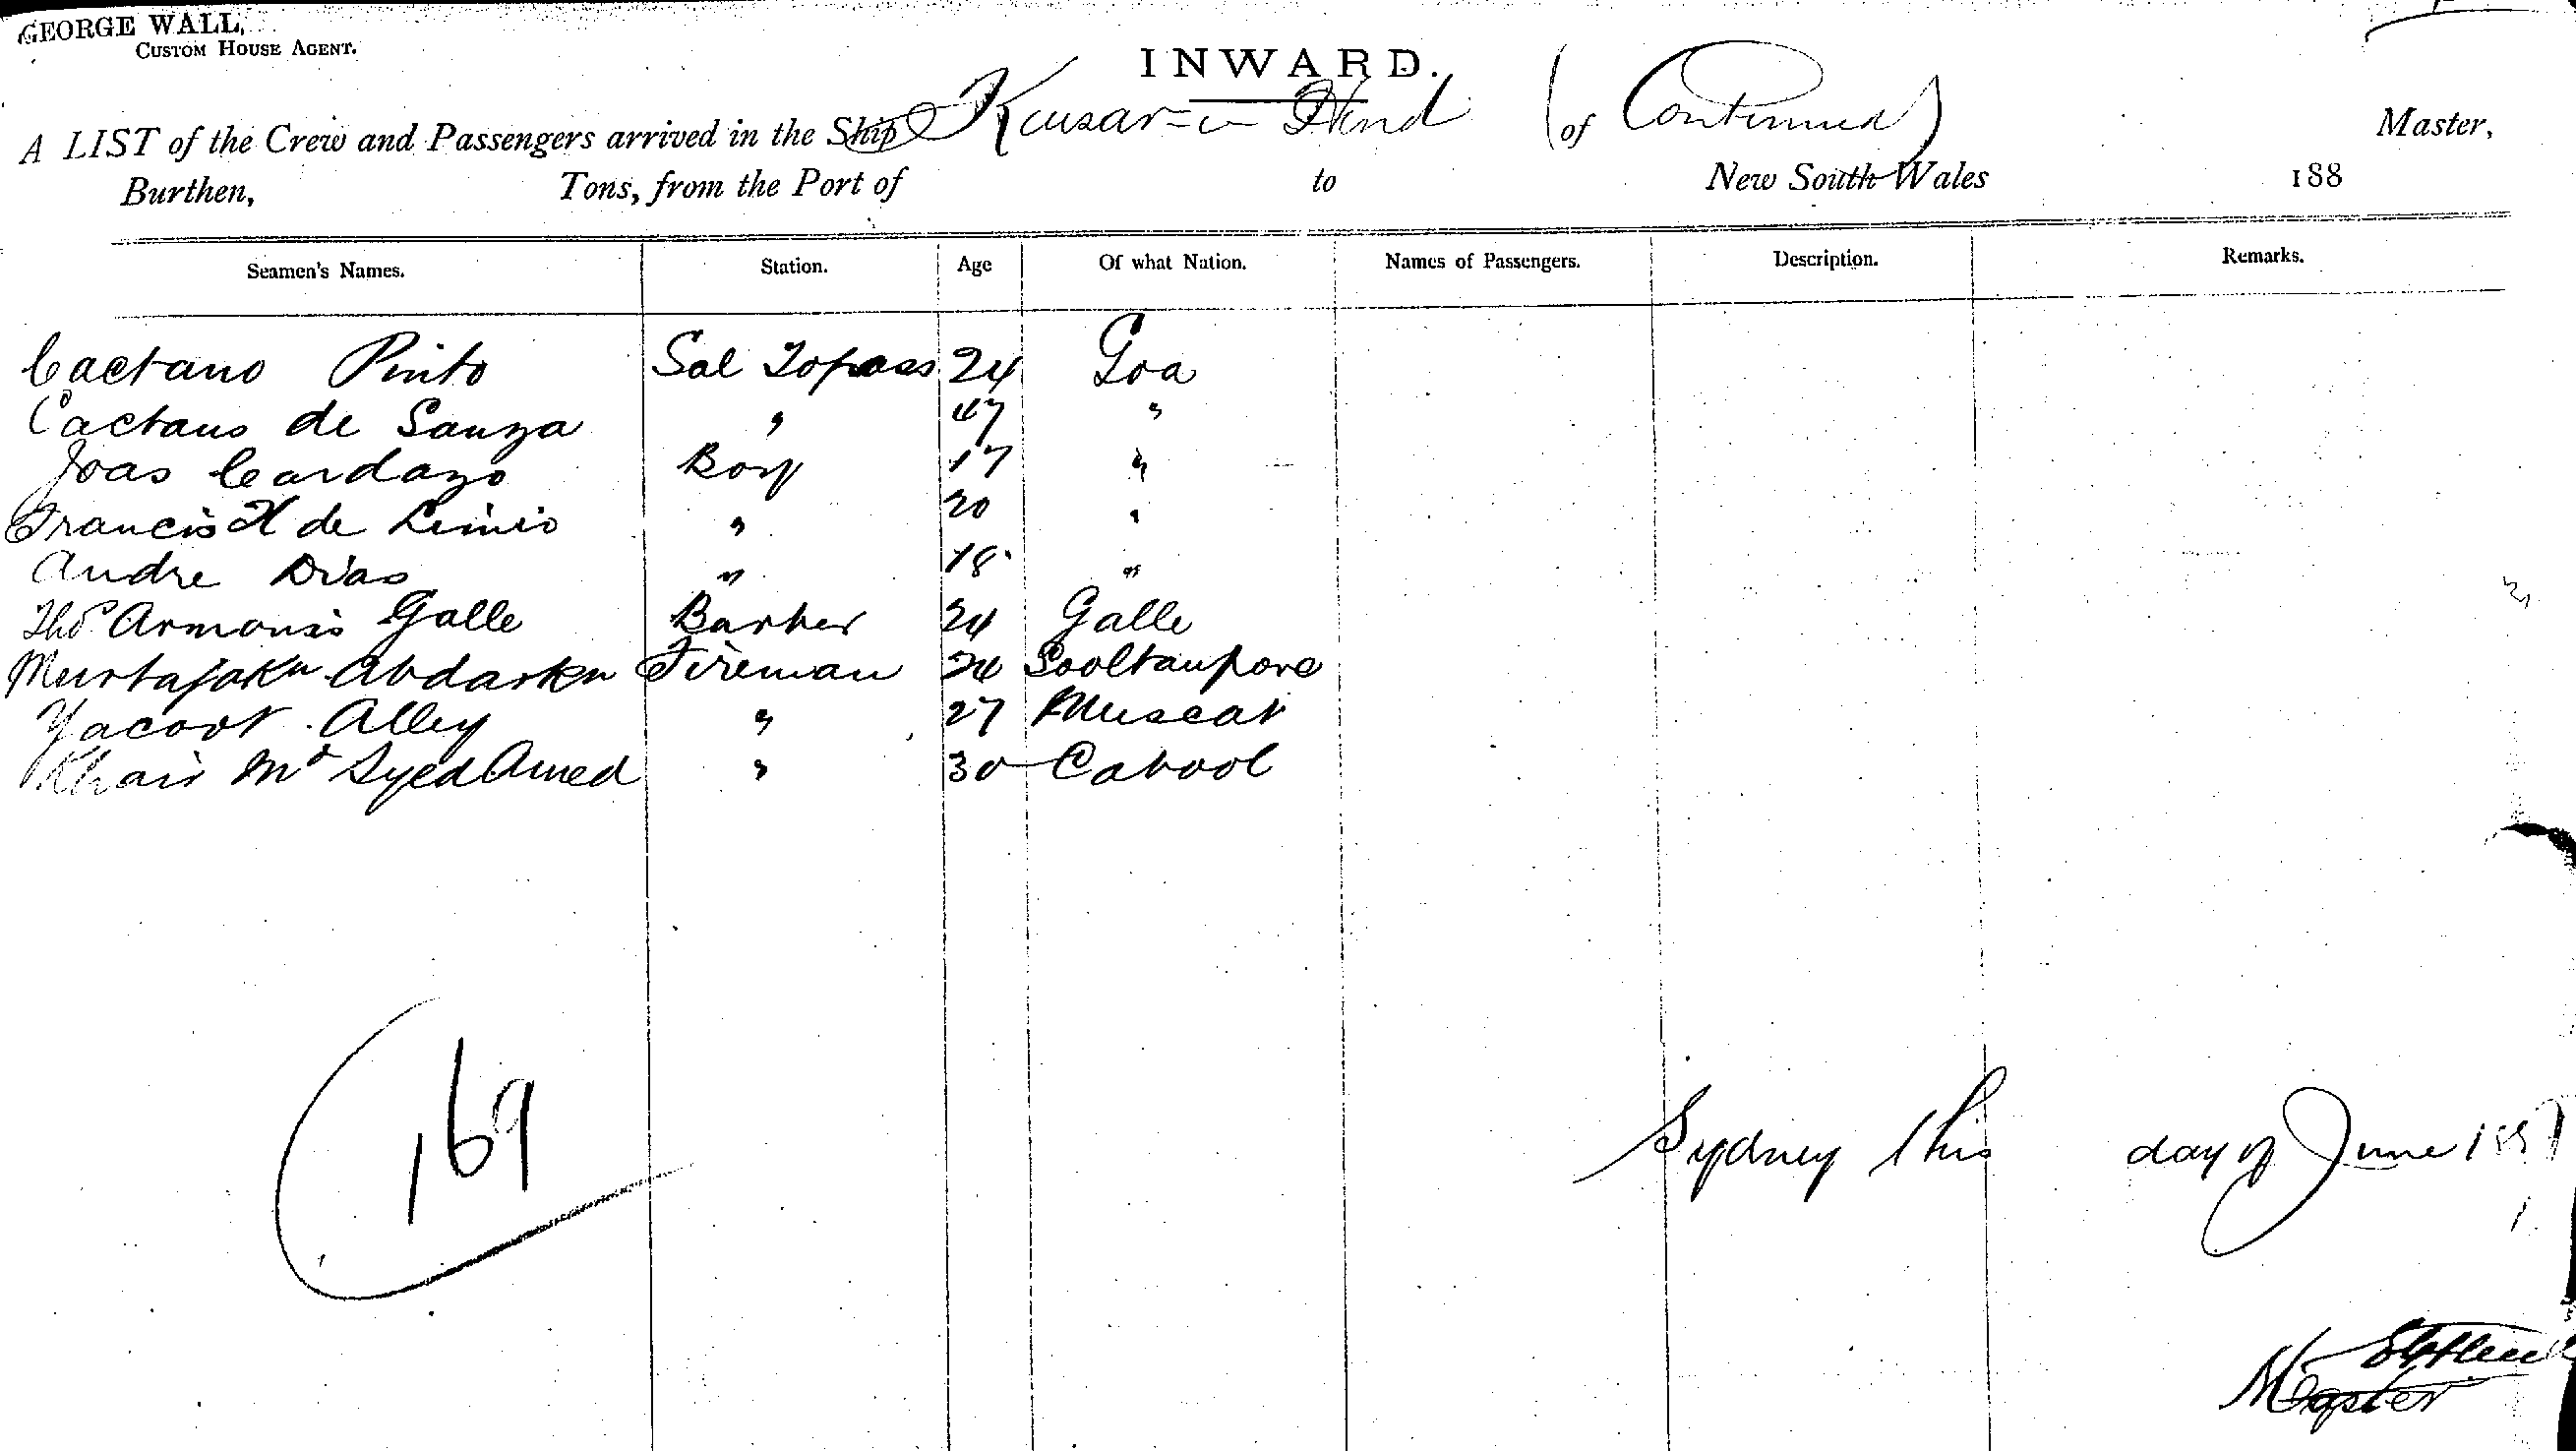 GEORGE WALL,
CUSTOM HOUSE AGENT.
INWARD.
A LIST of the Crew and Passengers arrived in the Ship Kaisar-i-Hind (of Continued) Master,
Burthen, Tons, from the Port of to New South Wales 188
Seamen's Names. Station. Age Of what Nation. Names of Passengers. Description. Remarks.
Caetano Pinto Sal Topass 24 Goa
Caetano de Sauza " 47 "
Joas Cardazo Boy 17 "
Francis X de " 20 "
Andre Dias " 18 "
Thos Galle Barber 24 Galle
Fireman Sooltanpore
Yacoot Alley " 27 Muscat
Khair Md Syed Amed " 30 Cabool
169
Sydney this day of June 188
Master